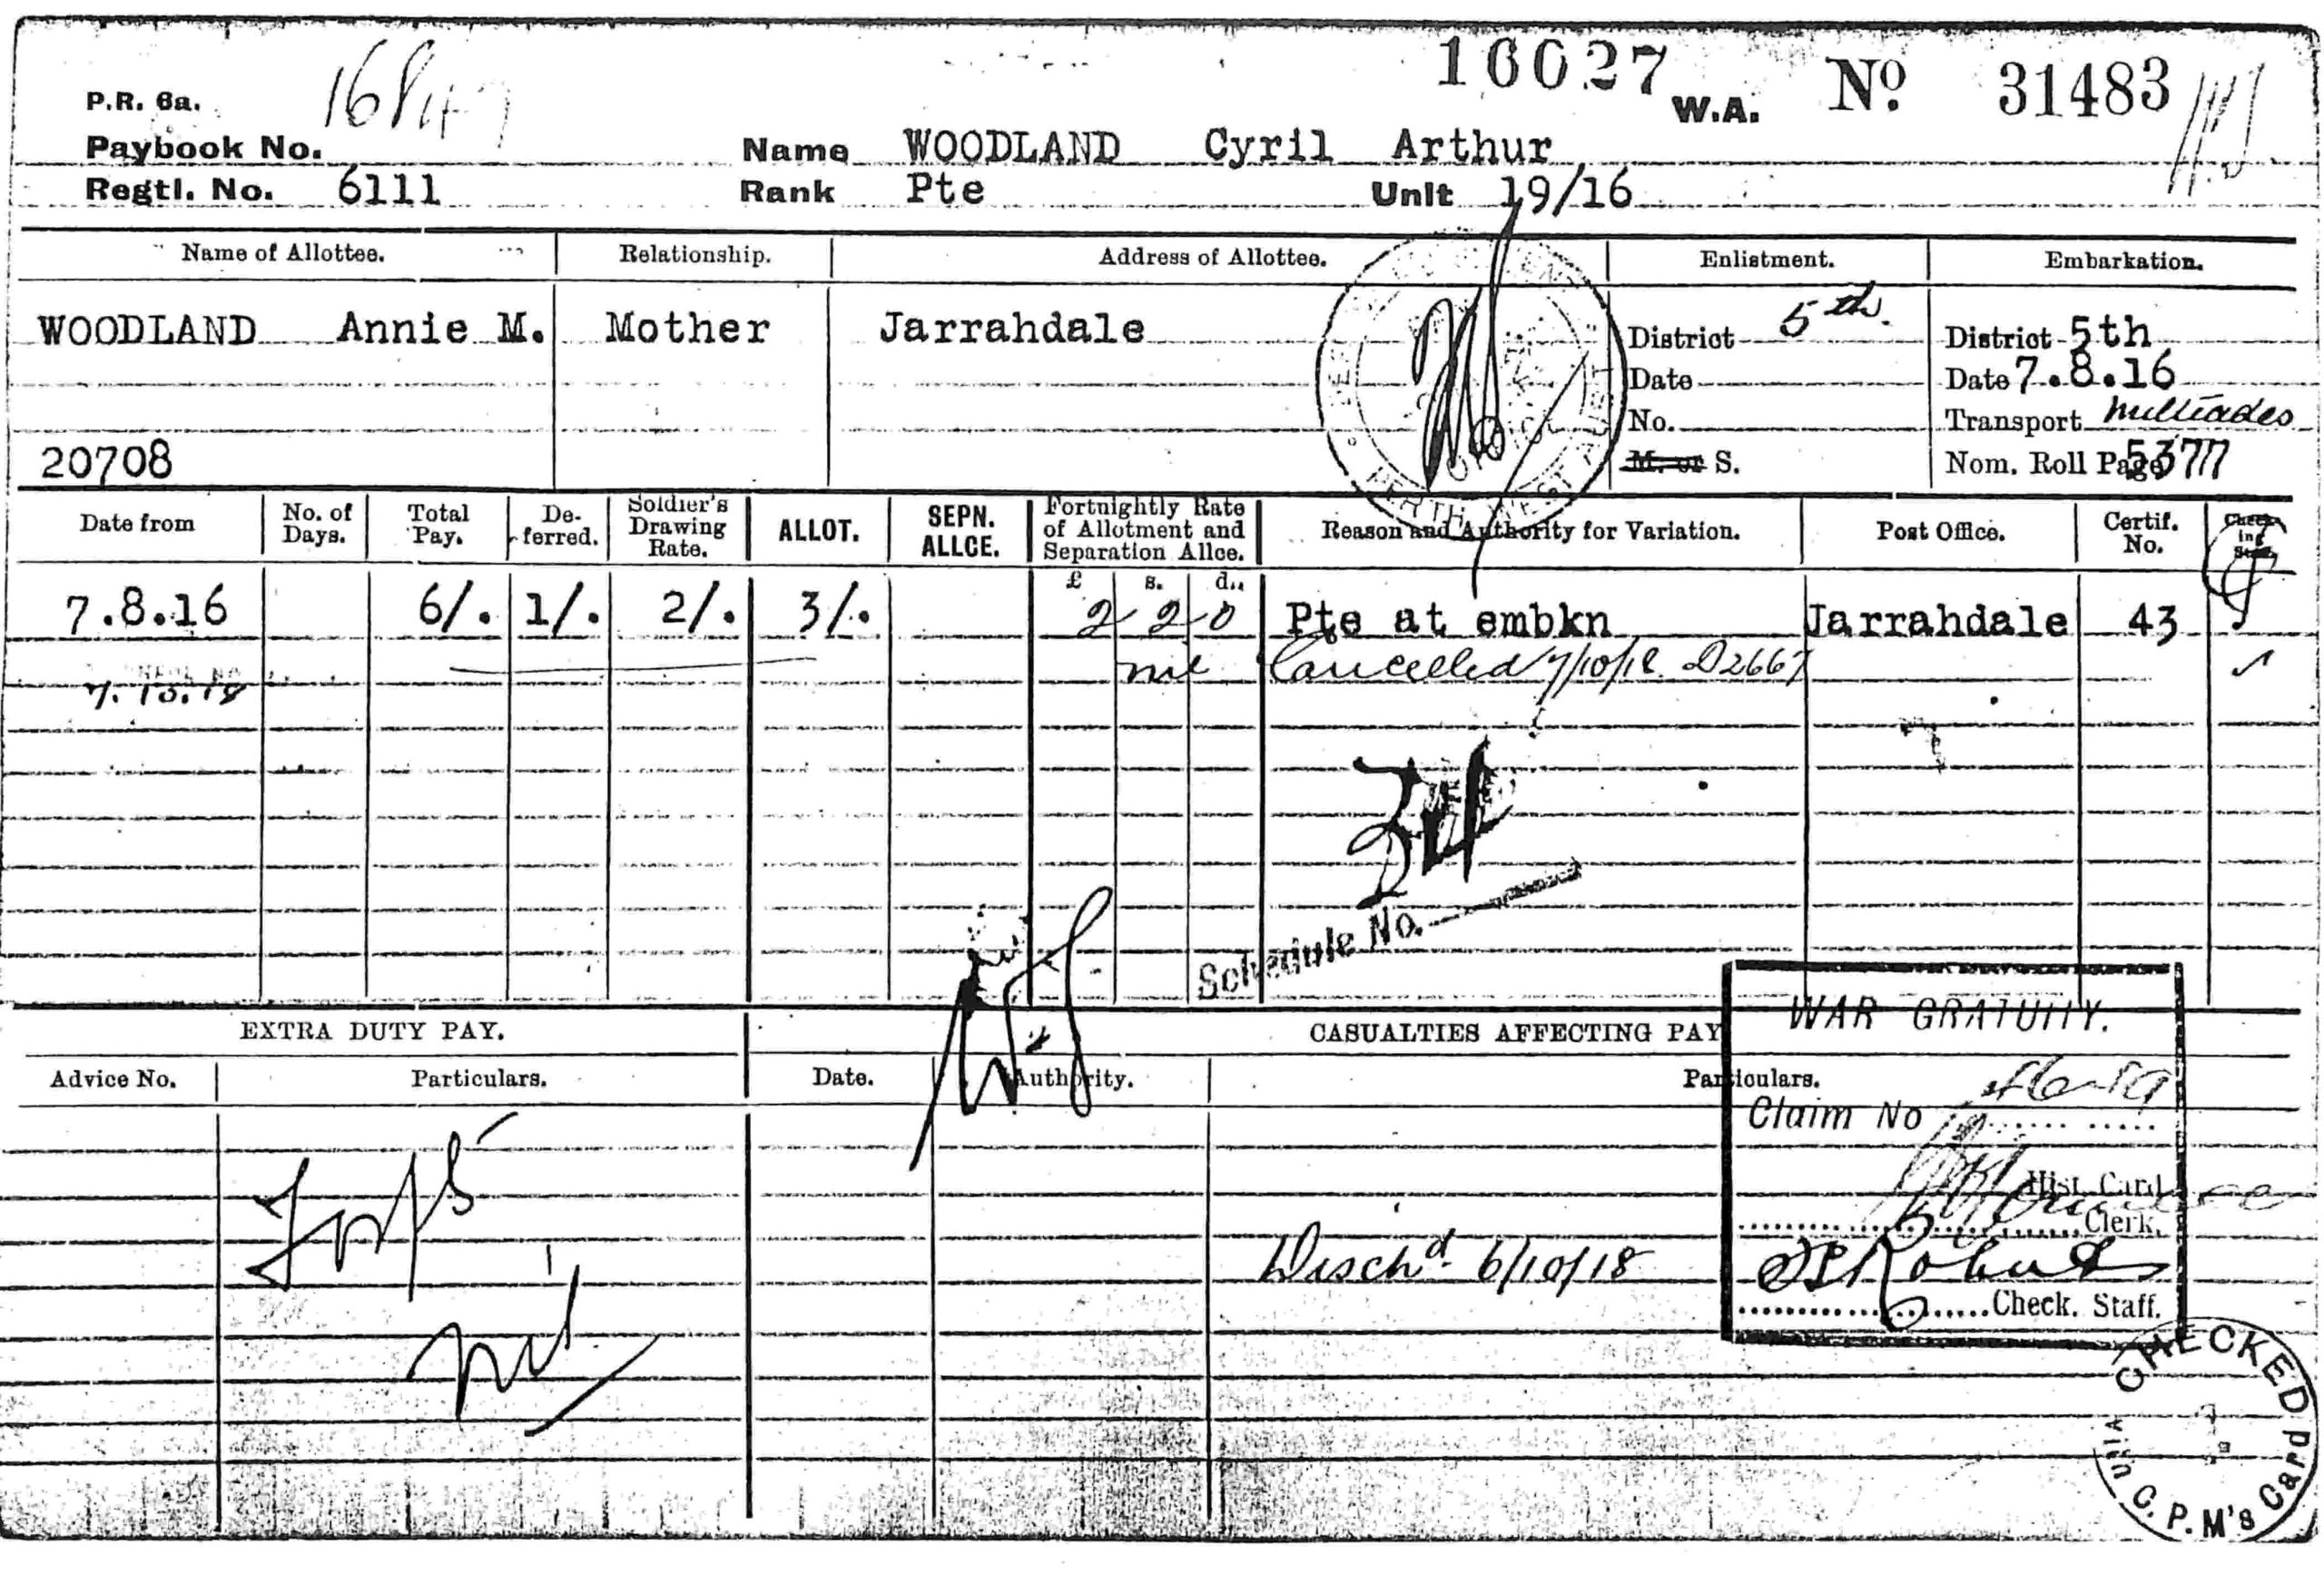 16027 W.A. No. 31483
P.R. 6a.
Paybook No. Name WOODLAND Cyril Arthur
Regtl. No. 6111 Rank Pte Unit 19/16
Name of Allottee. Relationship. Address of Allottee. Enlistment. Embarkation.
WOODLAND Annie M. Mother Jarrahdale District 5th. District 5th
Date Date 7.8.16
No. Transport Miltiades
20708 M. or S. Nom. Roll Page 5377
PERTH WEST AUST
Date from No. of Days. Total Pay. De-ferred. Soldier's Drawing Rate. ALLOT. SEPN. ALLCE. Fortnightly Rate of Allotment and Separation Allce. Reason and Authority for Variation. Post Office. Certif. No. Check-ing Staff
£ s. d.
7.8.16 6/. 1/. 2/. 3/. 2 2 0 Pte at embkn Jarrahdale 43
7.10.18 nil Cancelled 7/10/18 D2667
Schedule No.
EXTRA DUTY PAY. CASUALTIES AFFECTING PAY
Advice No. Particulars. Date. Authority. Particulars.
WAR GRATUITY.
Claim No
Hist. Card
Clerk.
nil
Disch'd. 6/10/18
Roberts
Check. Staff.
CHECKED
C.P.M's Card